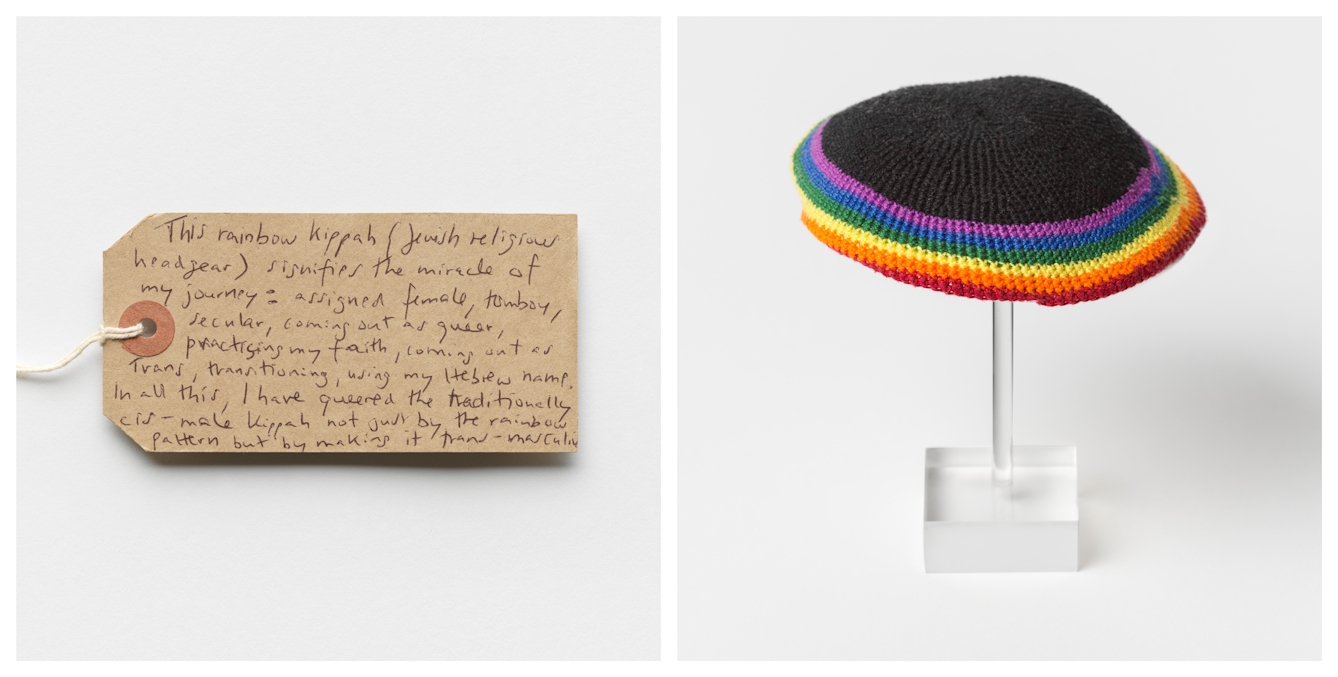 This rainbow kippah (Jewish religious
headgear) signifies the miracle of
my journey: assigned female, tomboy,
secular, coming out as queer,
practising my faith, coming out as
Trans, transitioning, using my Hebrew name.
In all this, I have queered the traditionally
cis-male kippah not just by the rainbow
pattern but by making it trans-masculin